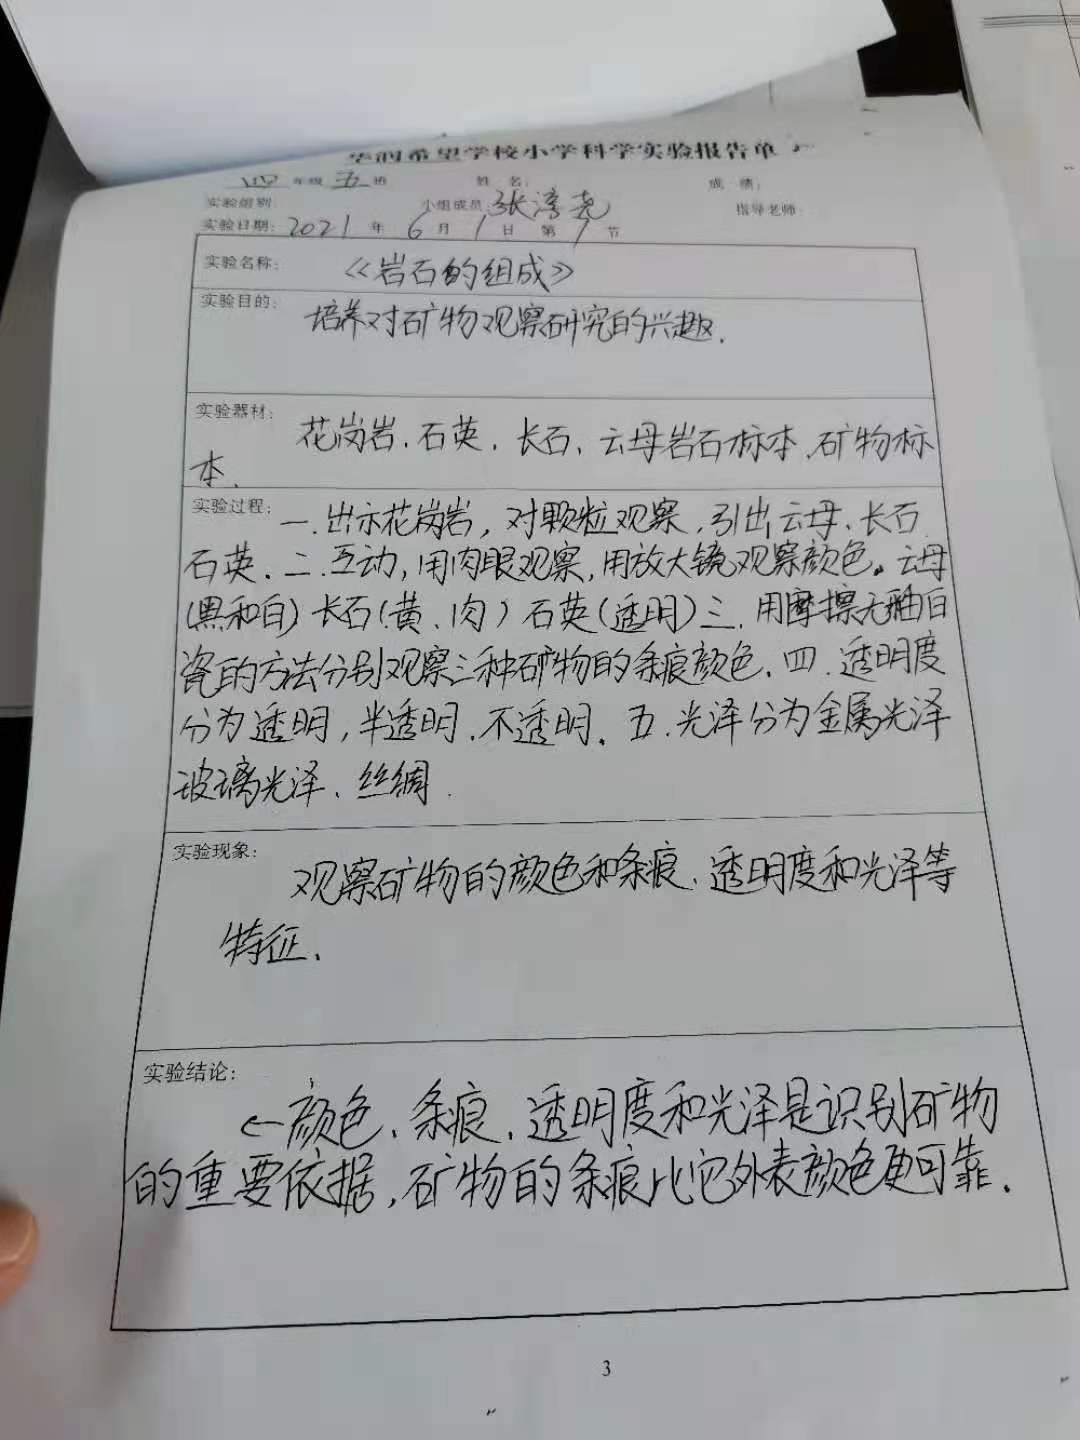 华润希望学校小学科学实验报告单
四 年级 五 班 姓 名： 成 绩：
实验组别： 小组成员：张淳尧 指导老师
实验日期：2021 年 6 月 1 日 第 7 节
实验名称： 《岩石的组成》
实验目的： 培养对矿物观察研究的兴趣.
实验器材： 花岗岩.石英.长石、云母岩石标本.矿物标
本.
实验过程： 一.出示花岗岩，对颗粒观察，引出云母、长石
石英.二.互动,用肉眼观察,用放大镜观察颜色。云母
(黑和白)长石(黄、肉)石英(透明)三.用摩擦无釉白
瓷的方法分别观察三种矿物的条痕颜色.四.透明度
分为透明,半透明.不透明.五.光泽分为金属光泽
玻璃光泽、丝绸.
实验现象： 观察矿物的颜色和条痕.透明度和光泽等
特征.
实验结论：
颜色.条痕.透明度和光泽是识别矿物
的重要依据,矿物的条痕比它外表颜色更可靠.
3